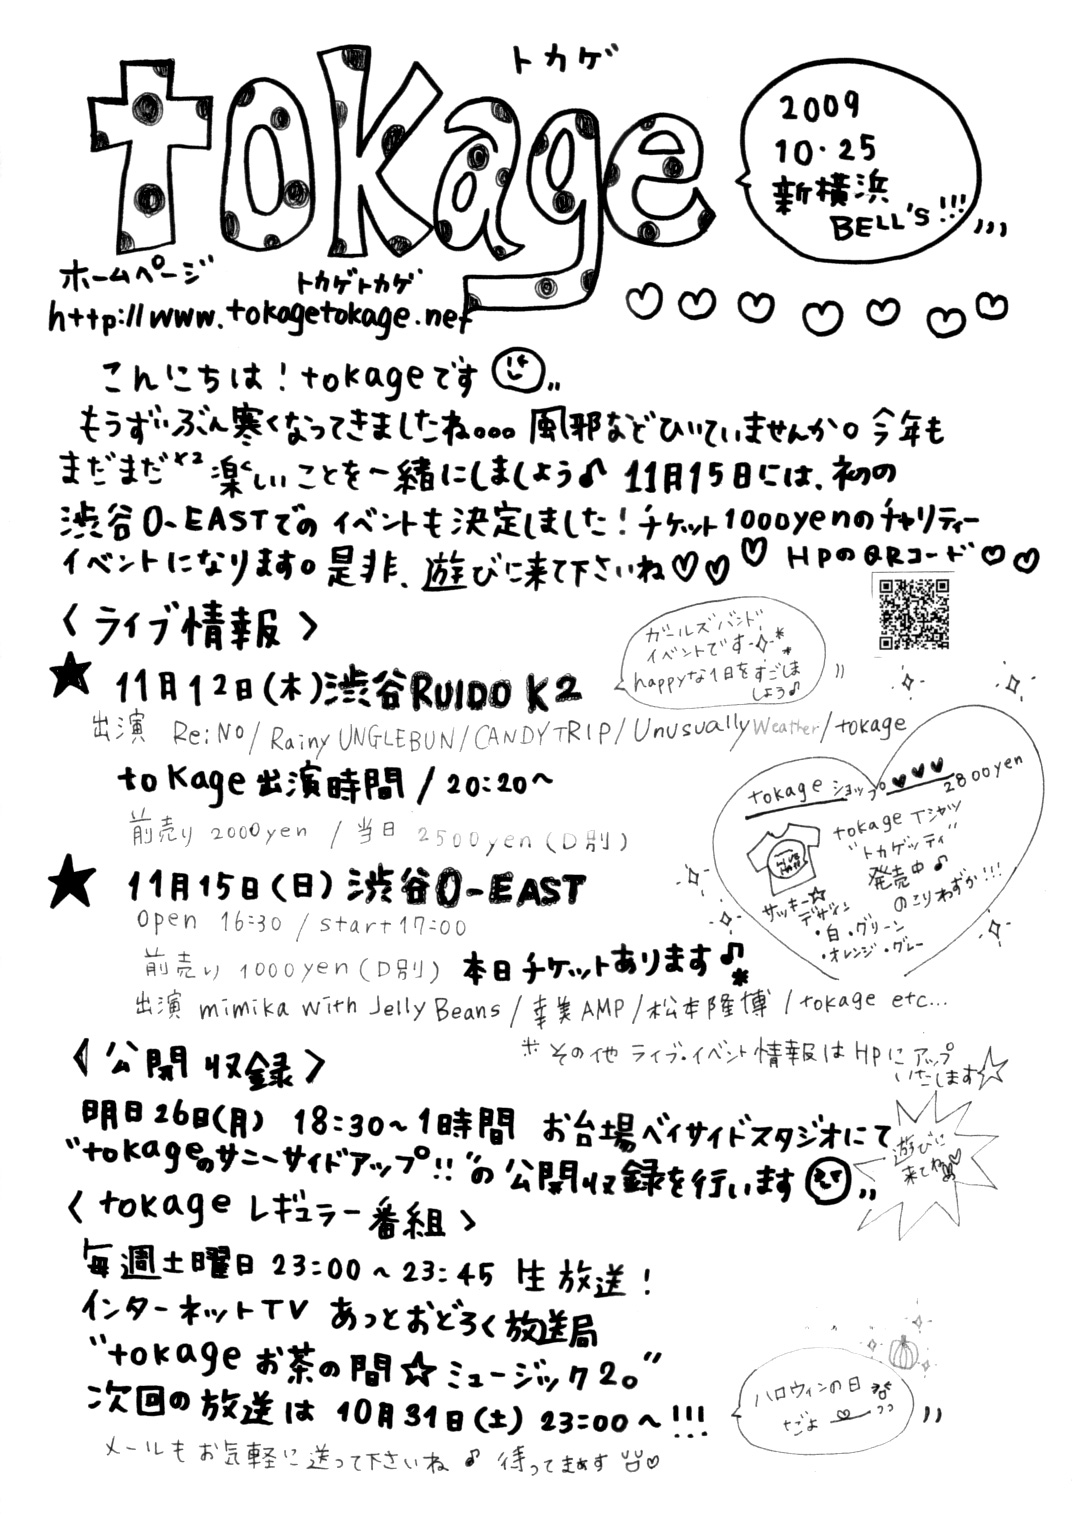 トカゲ
tokage
2009
10・25
新横浜
BELL'S!!!
ホームページ
トカゲトカゲ
http://www.tokagetokage.net
こんにちは！tokageです
もうずいぶん寒くなってきましたね。。。風邪などひいていませんか。今年も
まだまだ×2楽しいことを一緒にしましょう♪ 11月15日には、初の
渋谷O-EASTでのイベントも決定しました！チケット1000yenのチャリティー
イベントになります。是非、遊びに来て下さいね♡♡♡ HPのQRコード♡♡
〈ライブ情報〉
ガールズバンド
イベントです
happyな1日をすごしま
しょう♪
★ 11月12日(木)渋谷RUIDO K2
出演 Re:No/Rainy UNGLEBUN/CANDY TRIP/Unusually Weather/tokage
tokage出演時間/20:20～
前売り 2000yen / 当日 2500yen(D別)
tokageショップ♥♥♥
2800yen
tokage Tシャツ
"トカゲッティ"
発売中♪
のこりわずか!!!
サッキー☆
デザイン
・白・グリーン
・オレンジ・グレー
★ 11月15日(日)渋谷O-EAST
open 16:30 / start 17:00
前売り 1000yen(D別) 本日チケットあります♪*
出演 mimika with Jelly Beans/幸美AMP/松本隆博/tokage etc...
※その他 ライブ・イベント情報はHPにアップ
いたします☆
〈公開収録〉
明日26日(月) 18:30～1時間 お台場ベイサイドスタジオにて
"tokageのサニーサイドアップ!!"の公開収録を行います
遊びに
来てね♡
〈tokageレギュラー番組〉
毎週土曜日 23:00～23:45 生放送！
インターネットTV あっとおどろく放送局
"tokageお茶の間☆ミュージック2。"
次回の放送は10月31日(土)23:00～!!!
ハロウィンの日
だよ
メールもお気軽に送って下さいね♪ 待ってまぁす♡